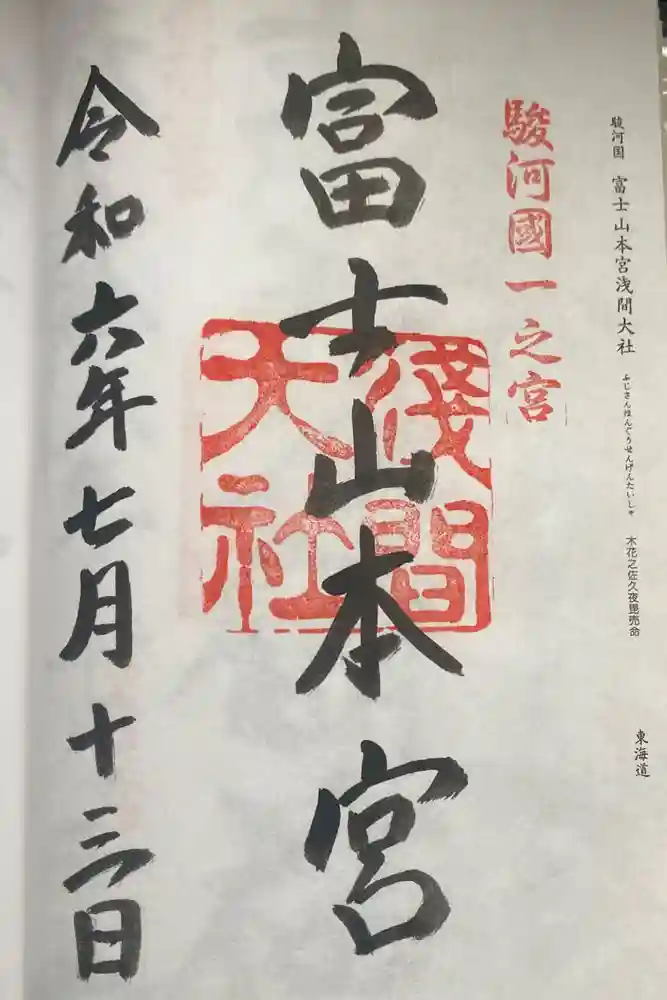 駿河国 富士山本宮浅間大社
ふじさんほんぐうせんげんたいしゃ
木花之佐久夜毘売命
東海道
駿河國一之宮
富士山本宮
淺間
大社
令和六年七月十三日